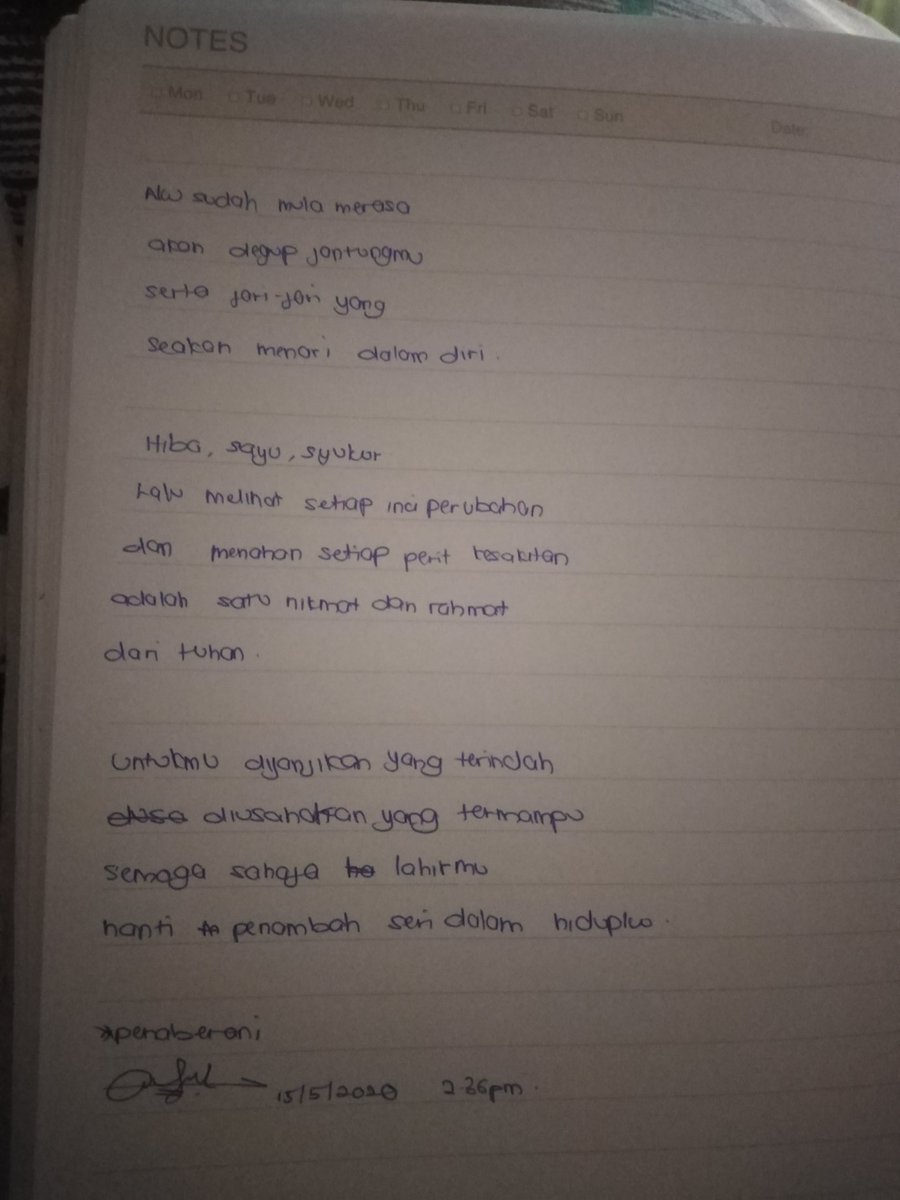 NOTES
Mon Tue Wed Thu Fri Sat Sun Date:
Aku sudah mula merasa
akan degup jantungmu
serta jari-jari yang
seakan menari dalam diri.
Hiba, sayu, syukur
kala melihat setiap inci perubahan
dan menahan setiap perit kesakitan
adalah satu nikmat dan rahmat
dari tuhan.
untukmu dijanjikan yang terindah
diusahakan yang termampu
semoga sahaja lahirmu
nanti penambah seri dalam hidupku.
*penaberani
15/5/2020 2.36pm.